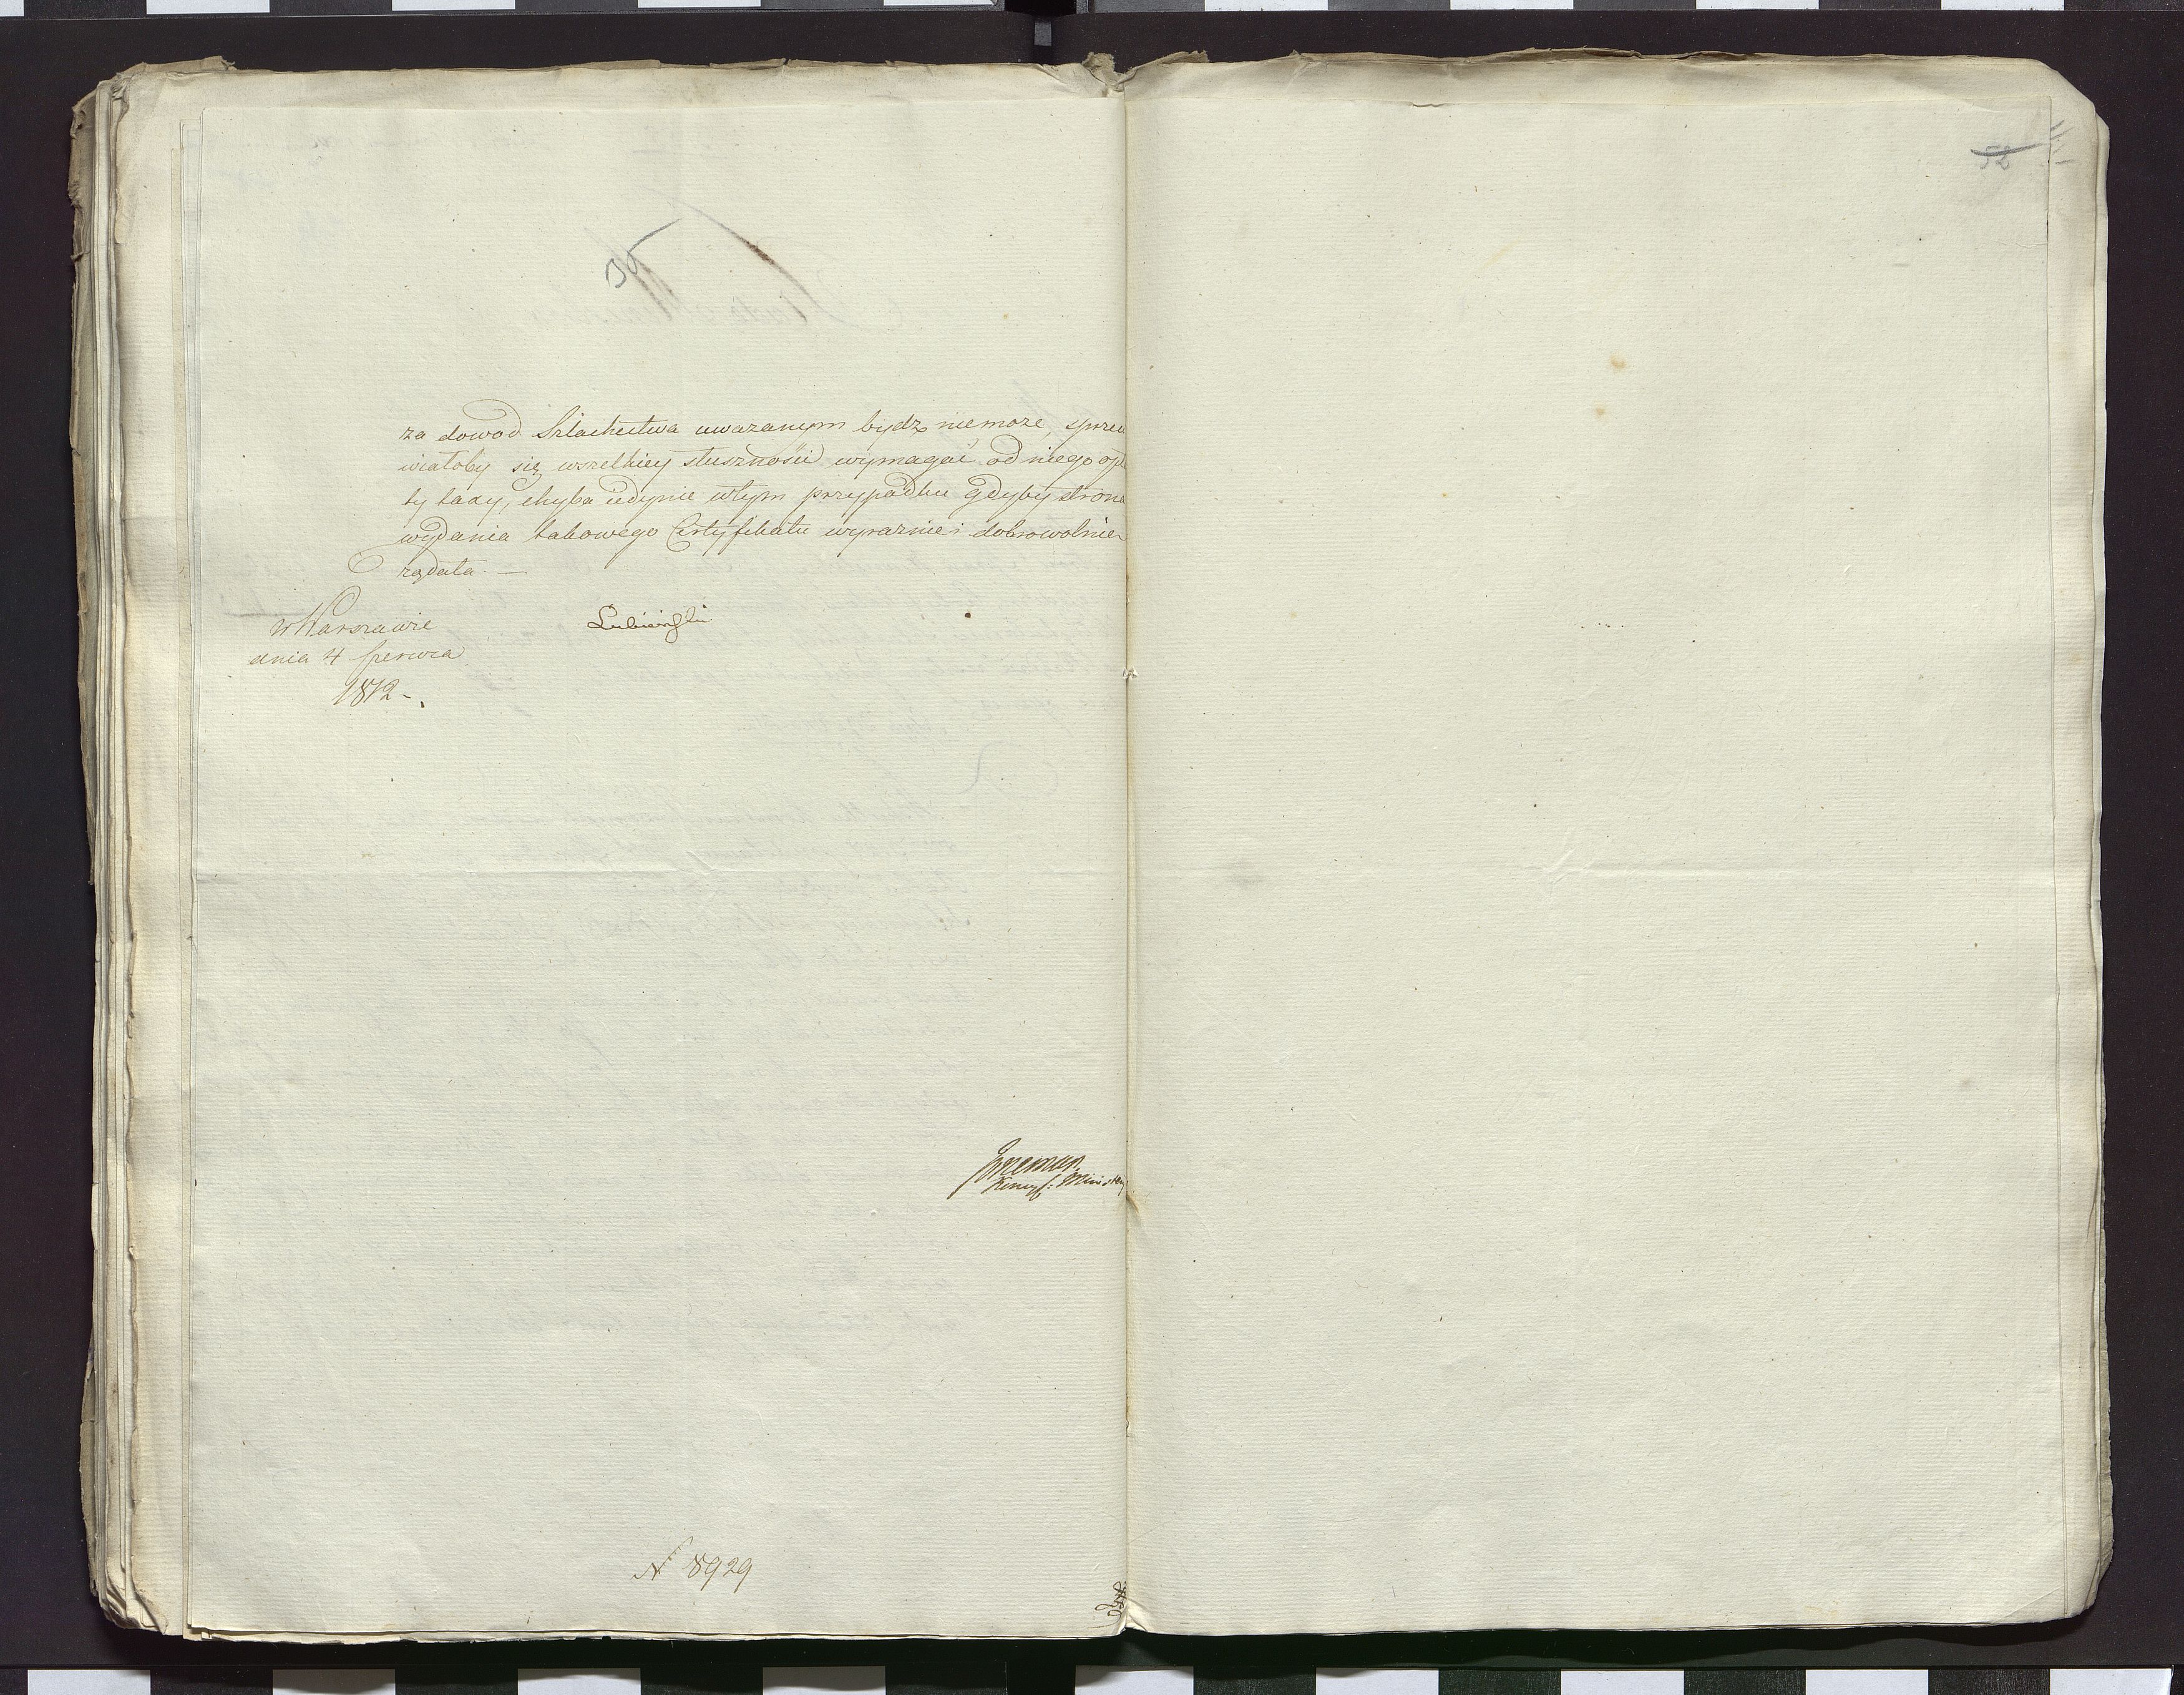 52
za dowod Szlachectwa uwazanym bydz niemoze, sprzeci
wiałoby się wszelkiey słuszności wymagać od niego opła
ty taxy, chyba iedynie w tym przypadku gdyby strona
wydania takowego Certyfikatu wyraznie i dobrowolnie
ządała. —
w Warszawie
dnia 4 Czerwca
1812 -
Lubieński
N 8929